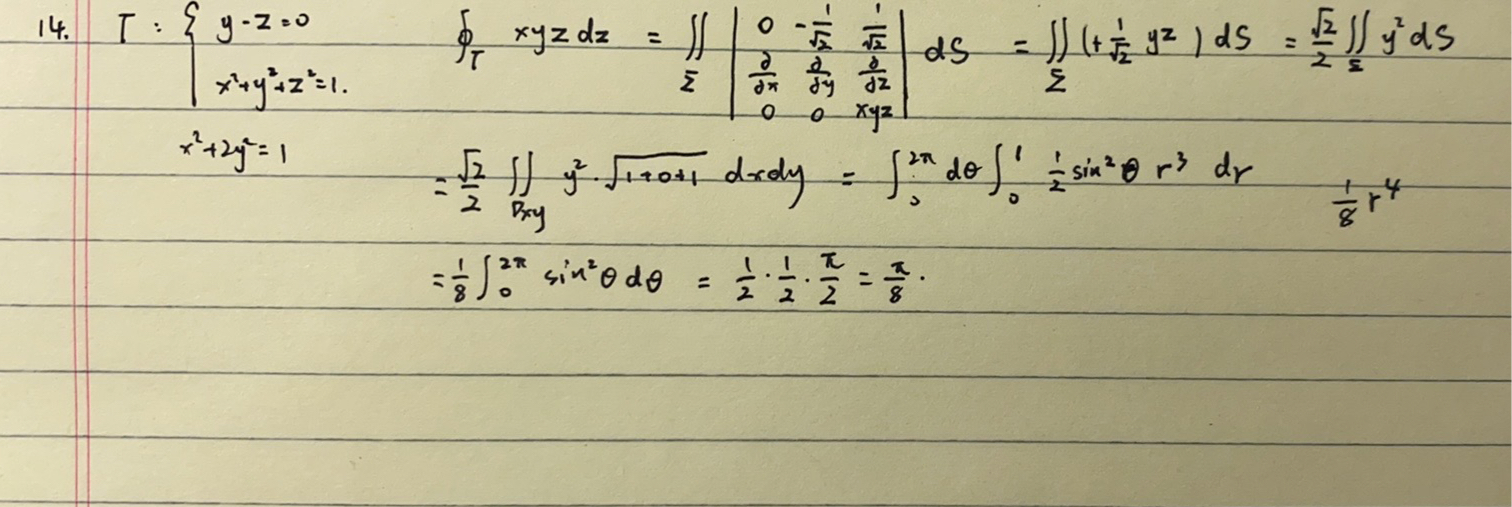 14. T : { y - z = 0
x²+y²+z²=1.
∮_T xyz dz = ∬_Σ | 0 -1/√2 1/√2 ; ∂/∂x ∂/∂y ∂/∂z ; 0 0 xyz | dS = ∬_Σ (+ 1/√2 yz ) dS = √2/2 ∬_Σ y² dS
x²+2y²=1
= √2/2 ∬_Dxy y²·√(1+0+1) dxdy = ∫₀^2π dθ ∫₀^1 1/2 sin²θ r³ dr
1/8 r⁴
= 1/8 ∫₀^2π sin²θ dθ = 1/2 · 1/2 · π/2 = π/8 .